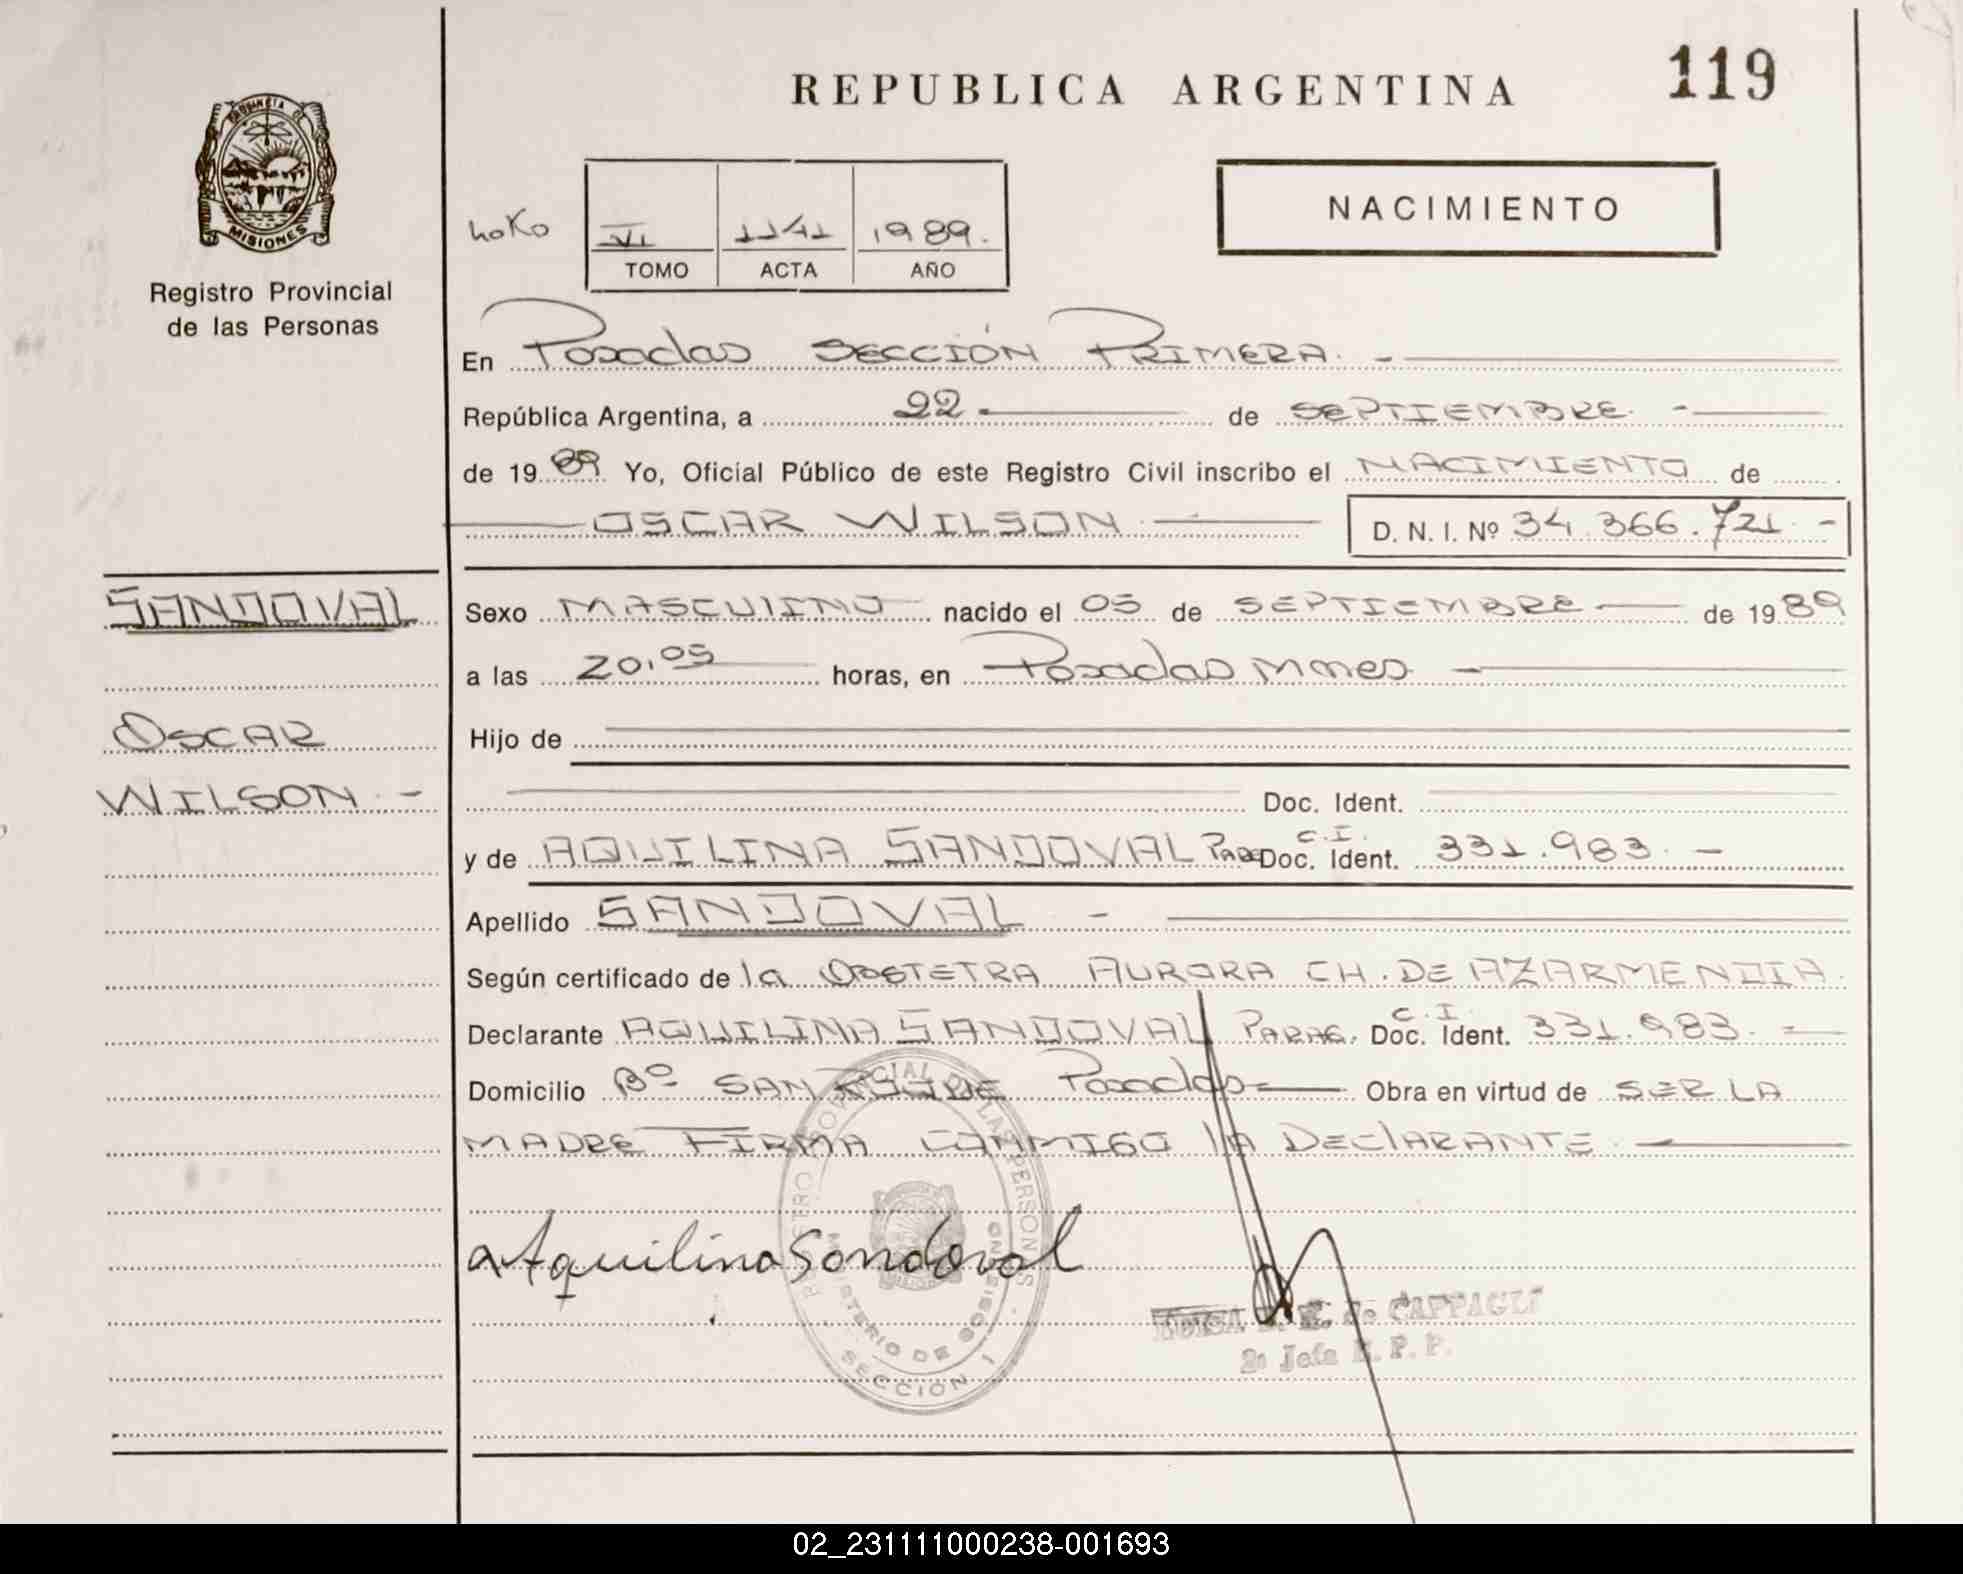 REPUBLICA ARGENTINA
119
PROVINCIA DE
MISIONES
Registro Provincial
de las Personas
VI 1141 1989.
TOMO ACTA AÑO
NACIMIENTO
En Posadas SECCIÓN PRIMERA. -
República Argentina, a 22 de SEPTIEMBRE. -
de 19 89 Yo, Oficial Público de este Registro Civil inscribo el NACIMIENTO de
OSCAR WILSON
D. N. I. Nº 34.366.721. -
SANDOVAL
OSCAR
WILSON. -
Sexo MASCULINO nacido el 05 de SEPTIEMBRE de 19 89
a las 20,05 horas, en Posadas Mnes. -
Hijo de
Doc. Ident.
y de AQUILINA SANDOVAL Doc. Ident. C.I. 331.983. -
Apellido SANDOVAL -
Según certificado de la OBSTETRA AURORA CH. DE AZARMENDIA.
Declarante AQUILINA SANDOVAL PARAG. Doc. Ident. C.I. 331.983. -
Domicilio Bº SAN ROQUE Posadas Obra en virtud de SER LA
MADRE FIRMA CONMIGO lA DEClARANTE.
Aquilina Sandoval
REGISTRO PROVINCIAL DE LAS PERSONAS
MINISTERIO DE GOBIERNO
SECCIÓN 1
de CAPPAGLI
2º Jefa R. P. P.
02_231111000238-001693